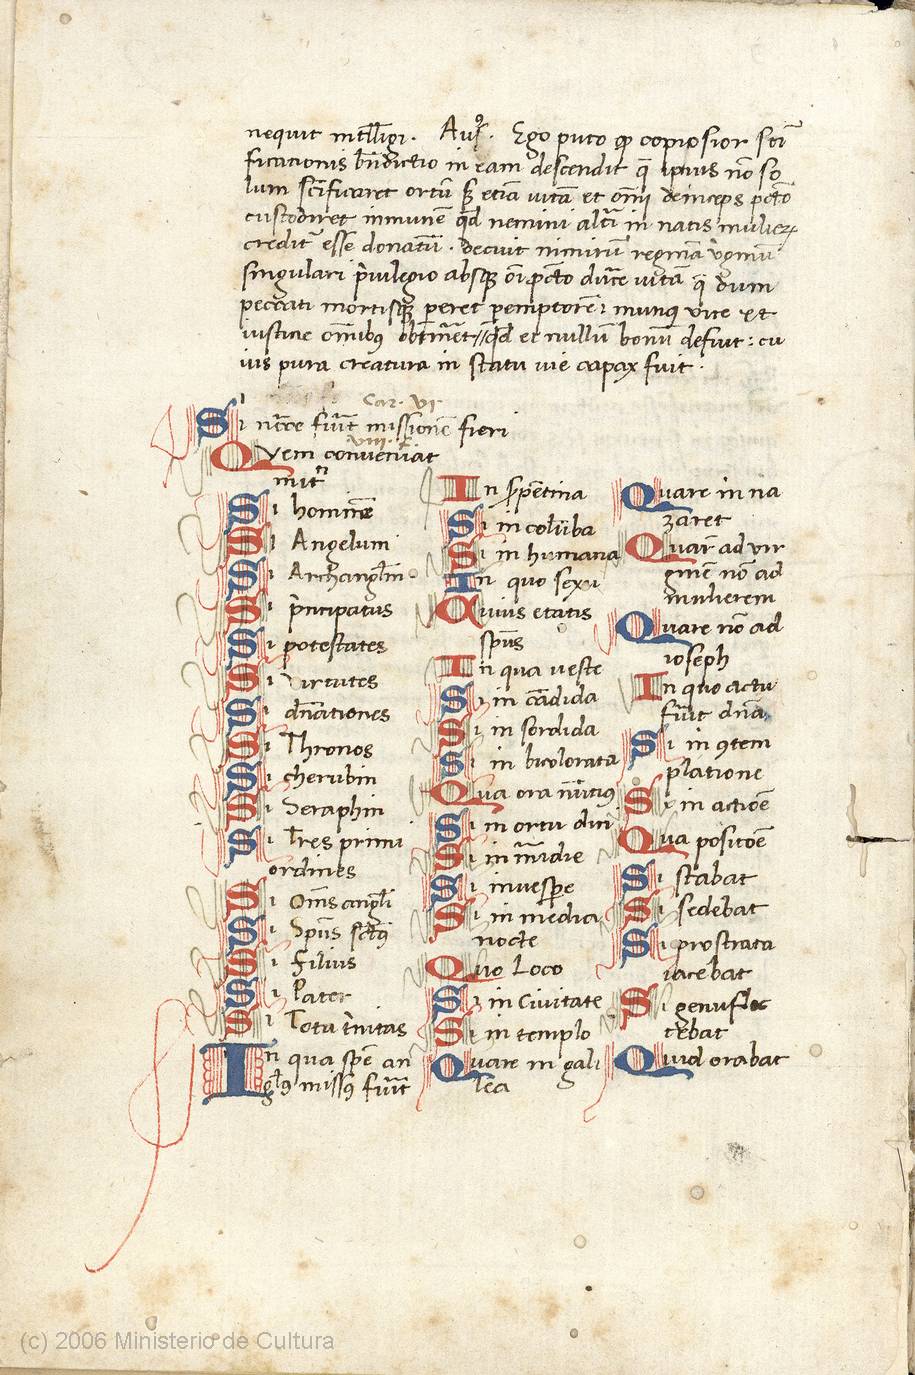 nequit intelligi. Aug⁹. Ego puto qđ copiosior sc̄ti
ficationis bn̄dictio in eam descendit q̄ ipsius nō so
lum sc̄ificaret ortū sʒ etiā uitā et om̄i deinceps pc̄to
custodiret inmunē qđ nemini alt̄i in natis mulieꝝ
credit̄ esse donatū. decuit nimirū reginā ūginū
singulari p̄iuilegio absqꝫ oī pc̄to dūce uitā q̄ dum
peccati mortisqꝫ peret pemptorē: munꝰ uite et
iusticie om̄ibꝰ obtin̄et qđ et nullū bonū defuit: cu
ius pura creatura in statu uie capax fuit.
Cap. vi
Si nc̄ce fuīt missionē fieri
viii.
Quem conueniat
mit
Si hominē
Si Angelum
Si Archangl̄m
Si p̄ncipatus
Si potestates
Si Virtutes
Si dn̄ationes
Si Thronos
Si cherubin
Si Seraphin
Si Tres primi
ordines
Si Om̄s angl̄i
Si Sp̄us sc̄tꝰ
Si Filius
Si Pater
Si Tota t̄nitas
In qua spē̄ an
gl̄ꝰ missꝰ fuīt
In spentina
Si in colūba
Si in humana
In quo sexu
Cuius etatis
sp̄us
In qua ueste
Si in cādida
Si in sordida
Si in bicolorata
Qua ora nūtiꝰ
Si in ortu diei
Si in m̄idie
Si in uespe
Si in media
nocte
Quo Loco
Si in Ciuitate
Si in templo
Quare in gali
lea
Quare in na
zaret
Quar̄ ad vir
ginē nō ad
mulierem
Quare nō ad
ioseph
In quo actu
fuīt dn̄a
Si in ꝯtem
platione
Si in actiōe
Qua positōe
Si stabat
Si sedebat
Si prostrata
iacebat
Si genuflec
tebat
Quid orabat
(c) 2006 Ministerio de Cultura